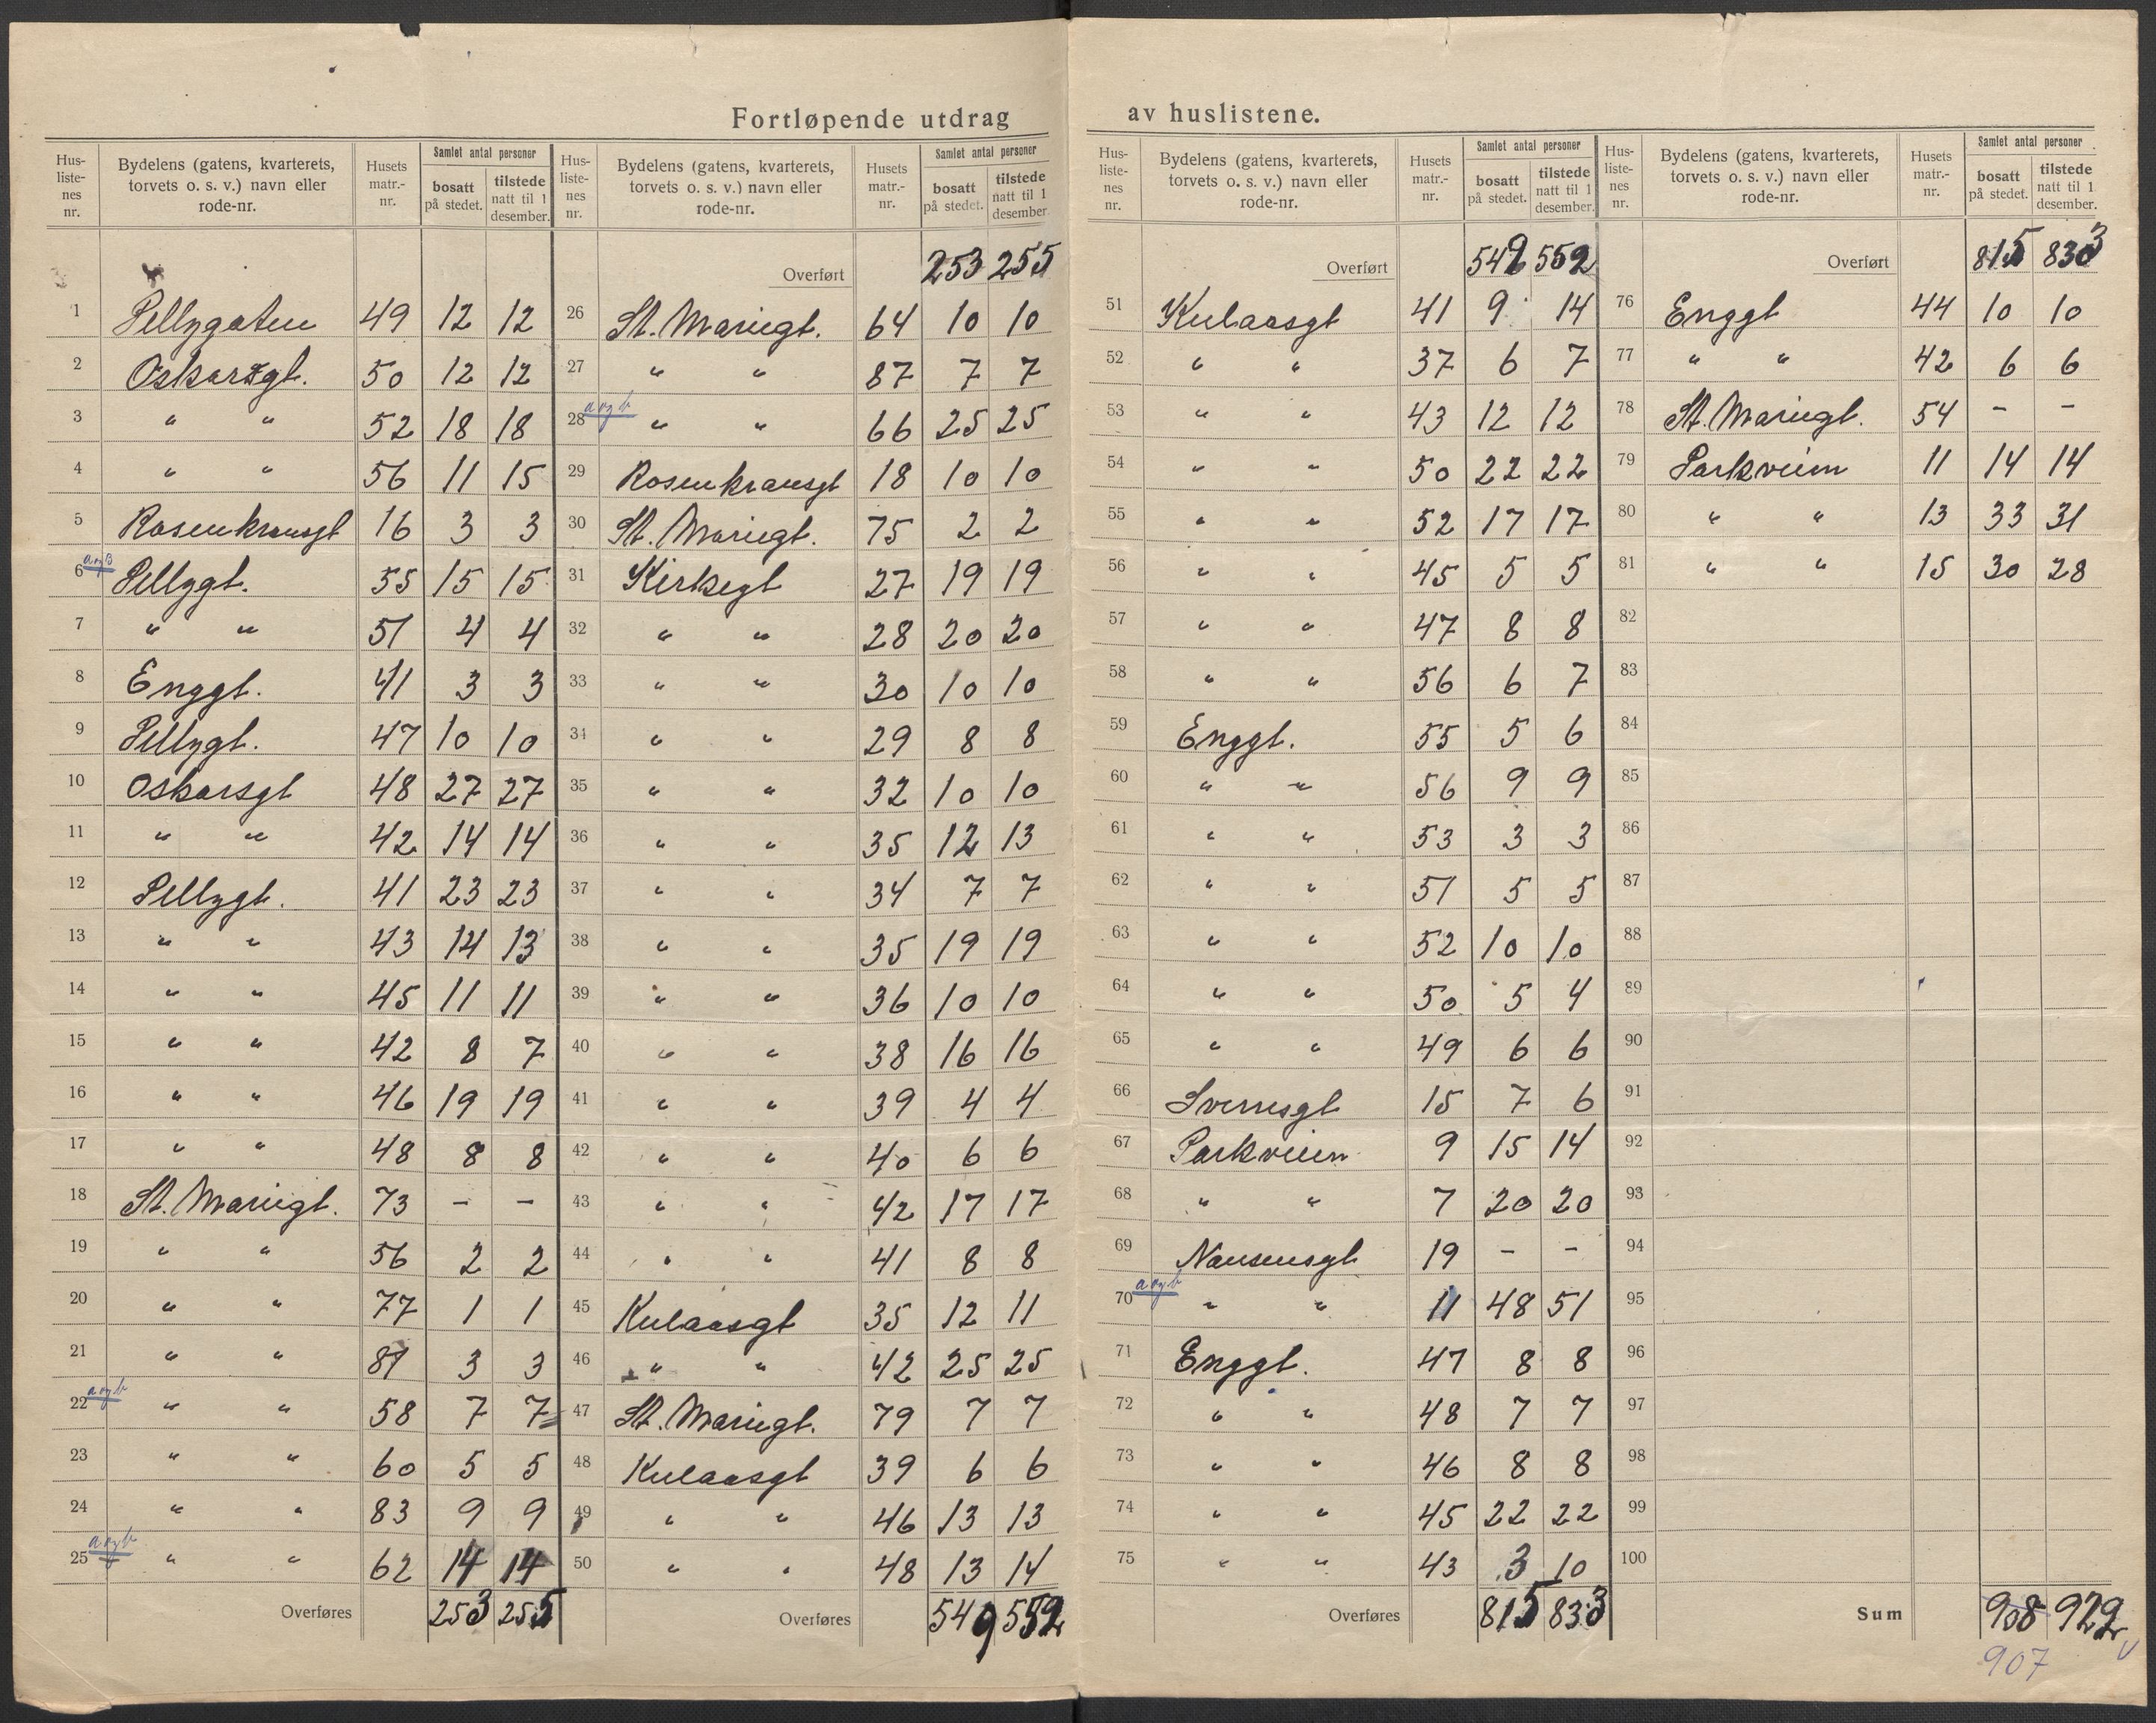 Fortløpende utdrag av huslistene.
Hus-listenes nr. Bydelens (gatens, kvarterets, torvets o. s. v.) navn eller rode-nr. Husets matr.-nr. Samlet antal personer bosatt på stedet. tilstede natt til 1 desember.
1 Pellygaten 49 12 12
2 Oskarsgt. 50 12 12
3 " " 52 18 18
4 " " 56 11 15
5 Rosenkransgt 16 3 3
6 a og B Pellygt. 55 15 15
7 " " 51 4 4
8 Enggt. 41 3 3
9 Pellygt. 47 10 10
10 Oskarsgt 48 27 27
11 " " 42 14 14
12 Pellygt. 41 23 23
13 " " 43 14 13
14 " " 45 11 11
15 " " 42 8 7
16 " " 46 19 19
17 " " 48 8 8
18 St. Mariegt. 73 - -
19 " " 56 2 2
20 " " 77 1 1
21 " " 81 3 3
22 a og b " " 58 7 7
23 " " 60 5 5
24 " " 83 9 9
25 a og b " " 62 14 14
Overføres 253 255
Hus-listenes nr. Bydelens (gatens, kvarterets, torvets o. s. v.) navn eller rode-nr. Husets matr.-nr. Samlet antal personer bosatt på stedet. tilstede natt til 1 desember.
Overført 253 255
26 St. Mariegt. 64 10 10
27 " " 87 7 7
28 a og b " " 66 25 25
29 Rosenkransgt 18 10 10
30 St. Mariegt. 75 2 2
31 Kirkegt 27 19 19
32 " " 28 20 20
33 " " 30 10 10
34 " " 29 8 8
35 " " 32 10 10
36 " " 35 12 13
37 " " 34 7 7
38 " " 35 19 19
39 " " 36 10 10
40 " " 38 16 16
41 " " 39 4 4
42 " " 40 6 6
43 " " 42 17 17
44 " " 41 8 8
45 Kulaasgt 35 12 11
46 " " 42 25 25
47 St. Mariegt. 79 7 7
48 Kulaasgt 39 6 6
49 " " 46 13 13
50 " " 48 13 14
Overføres 549 552
Hus-listenes nr. Bydelens (gatens, kvarterets, torvets o. s. v.) navn eller rode-nr. Husets matr.-nr. Samlet antal personer bosatt på stedet. tilstede natt til 1 desember.
Overført 549 552
51 Kulaasgt 41 9 14
52 " " 37 6 7
53 " " 43 12 12
54 " " 50 22 22
55 " " 52 17 17
56 " " 45 5 5
57 " " 47 8 8
58 " " 56 6 7
59 Enggt. 55 5 6
60 " " 56 9 9
61 " " 53 3 3
62 " " 51 5 5
63 " " 52 10 10
64 " " 50 5 4
65 " " 49 6 6
66 Sverresgt 15 7 6
67 Parkveien 9 15 14
68 " " 7 20 20
69 Nansensgt 19 - -
70 a og b " " 11 48 51
71 Enggt. 47 8 8
72 " " 48 7 7
73 " " 46 8 8
74 " " 45 22 22
75 " " 43 3 10
Overføres 815 833
Hus-listenes nr. Bydelens (gatens, kvarterets, torvets o. s. v.) navn eller rode-nr. Husets matr.-nr. Samlet antal personer bosatt på stedet. tilstede natt til 1 desember.
Overført 815 833
76 Enggt 44 10 10
77 " " 42 6 6
78 St. Mariegt. 54 - -
79 Parkveien 11 14 14
80 " " 13 33 31
81 " " 15 30 28
82
83
84
85
86
87
88
89
90
91
92
93
94
95
96
97
98
99
100
Sum 908 922
907